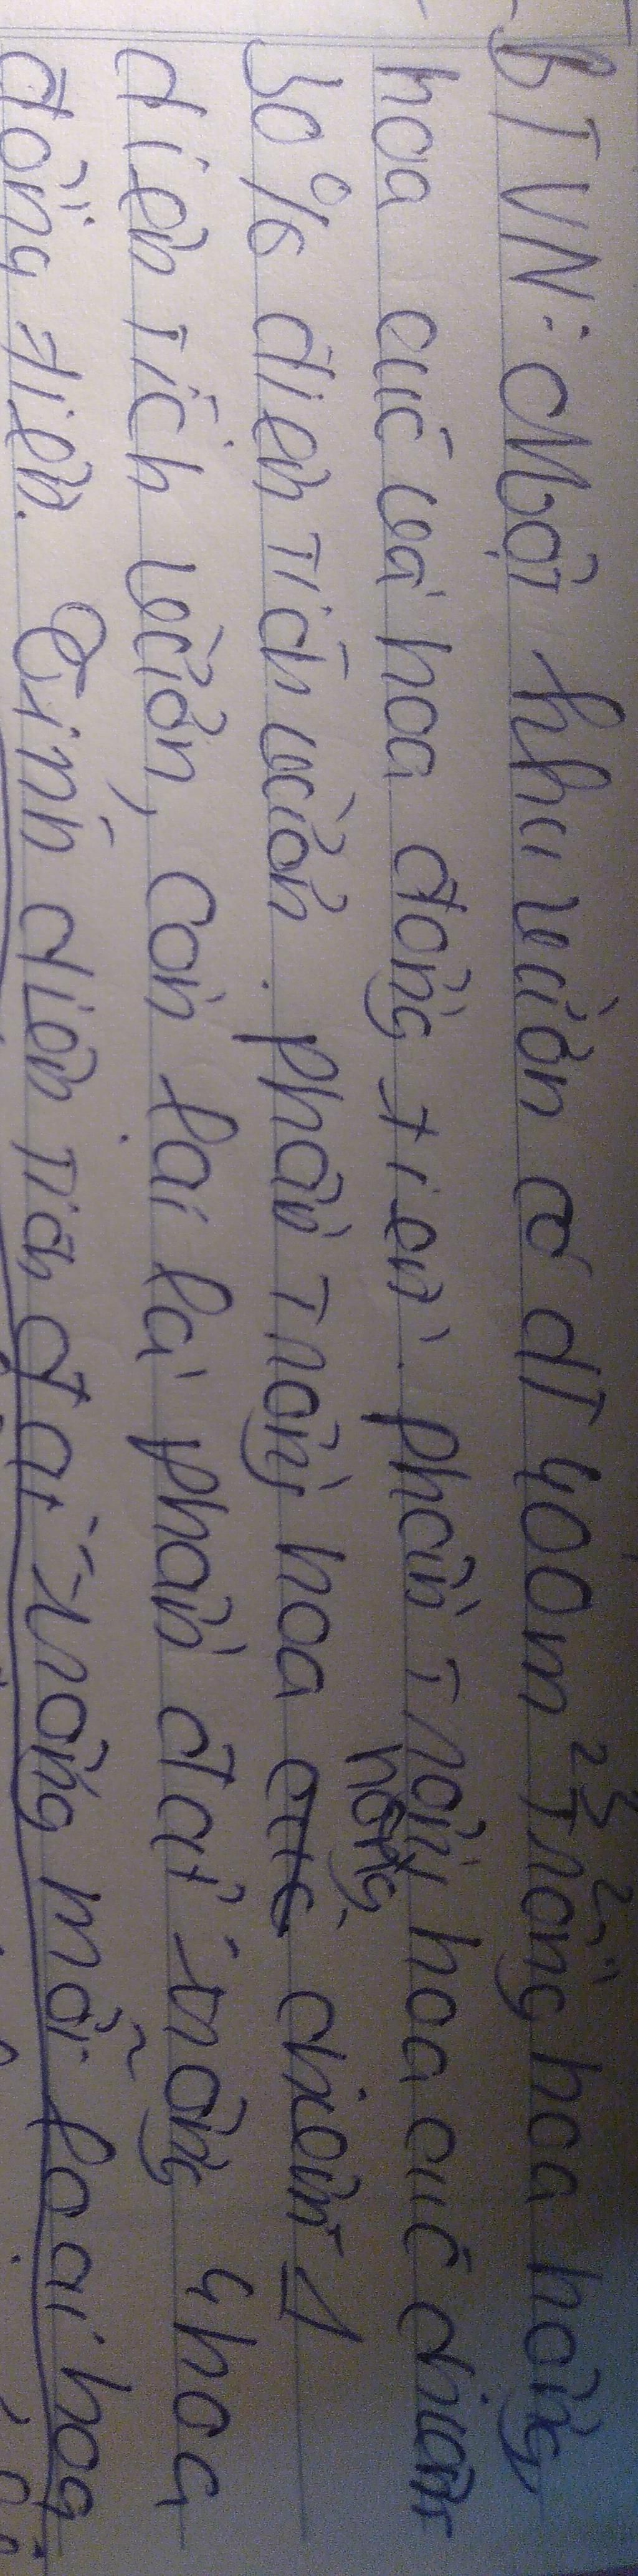 BTVN: Một khu vườn có dT 400m² Trồng hoa hồng,
hoa cúc và hoa đồng tiền. phần Trồng hoa cúc chiếm
30% diện Tích vườn. phần Trồng hoa hồng chiếm 1
diện Tích vườn, còn lại là phần đất trồng hoa
đồng tiền. Tính diện Tích đất trồng mỗi loại hoa